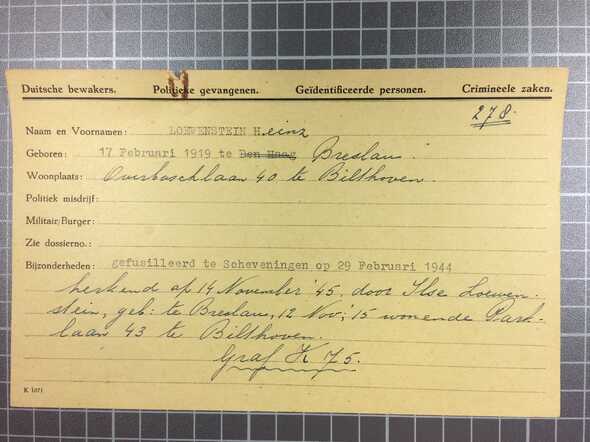 Duitsche bewakers. Politieke gevangenen. Geïdentificeerde personen. Crimineele zaken.
278.
Naam en Voornamen: LOEWENSTEIN Heinz
Geboren: 17 Februari 1919 te Den Haag Breslau.
Woonplaats: Overboschlaan 40 te Bilthoven.
Politiek misdrijf:
Militair/Burger:
Zie dossierno.:
Bijzonderheden: gefusilleerd te Scheveningen op 29 Februari 1944
herkend op 14 November '45, door Ilse Loewen-
stein, geb: te Breslau, 12 Nov; 15 wonende Park-
laan 43 te Bilthoven.
Graf K 75.
K 1071